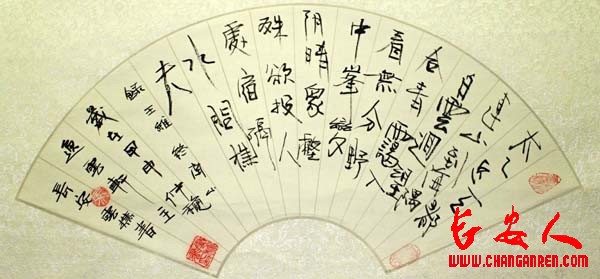 太乙
近天都
連山到海隅
白雲迴望
合青靄入
看無分野
中峯變
陰晴眾壑
殊欲投人
處宿隔
水問樵
夫
錄王維終南山
歲在甲申仲穐
長安
長安人
WWW.CHANGANREN.COM